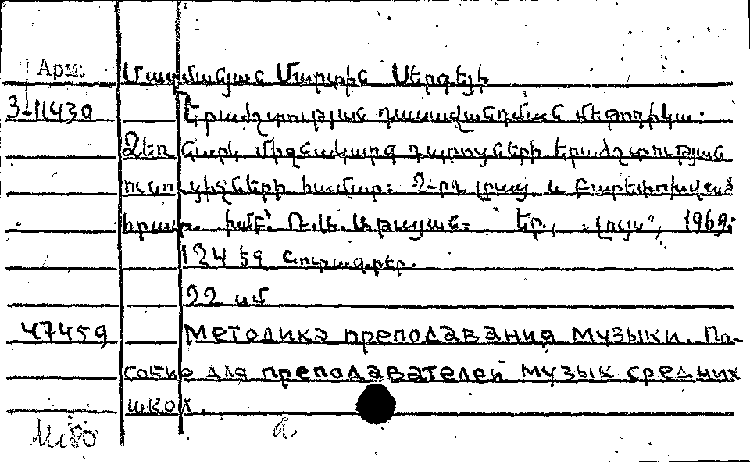 Арм.
Մարտին Սերգեյի
3-11430 Երաժշտության դասավանդման մեթոդիկա:
Ձեռնարկ միջնակարգ դպրոցների երաժշտության
ուսուցիչների համար: 2-րդ լրաց. և բարեփոխված
հրատ. խմբ՝ Ռ. Ա. Աթայան. Եր., „Լույս“, 1969.
124 էջ նոտագրեր.
22 սմ
47459 Методика преподавания музыки. По-
собие для преподавателей музык средних
школ.
а.